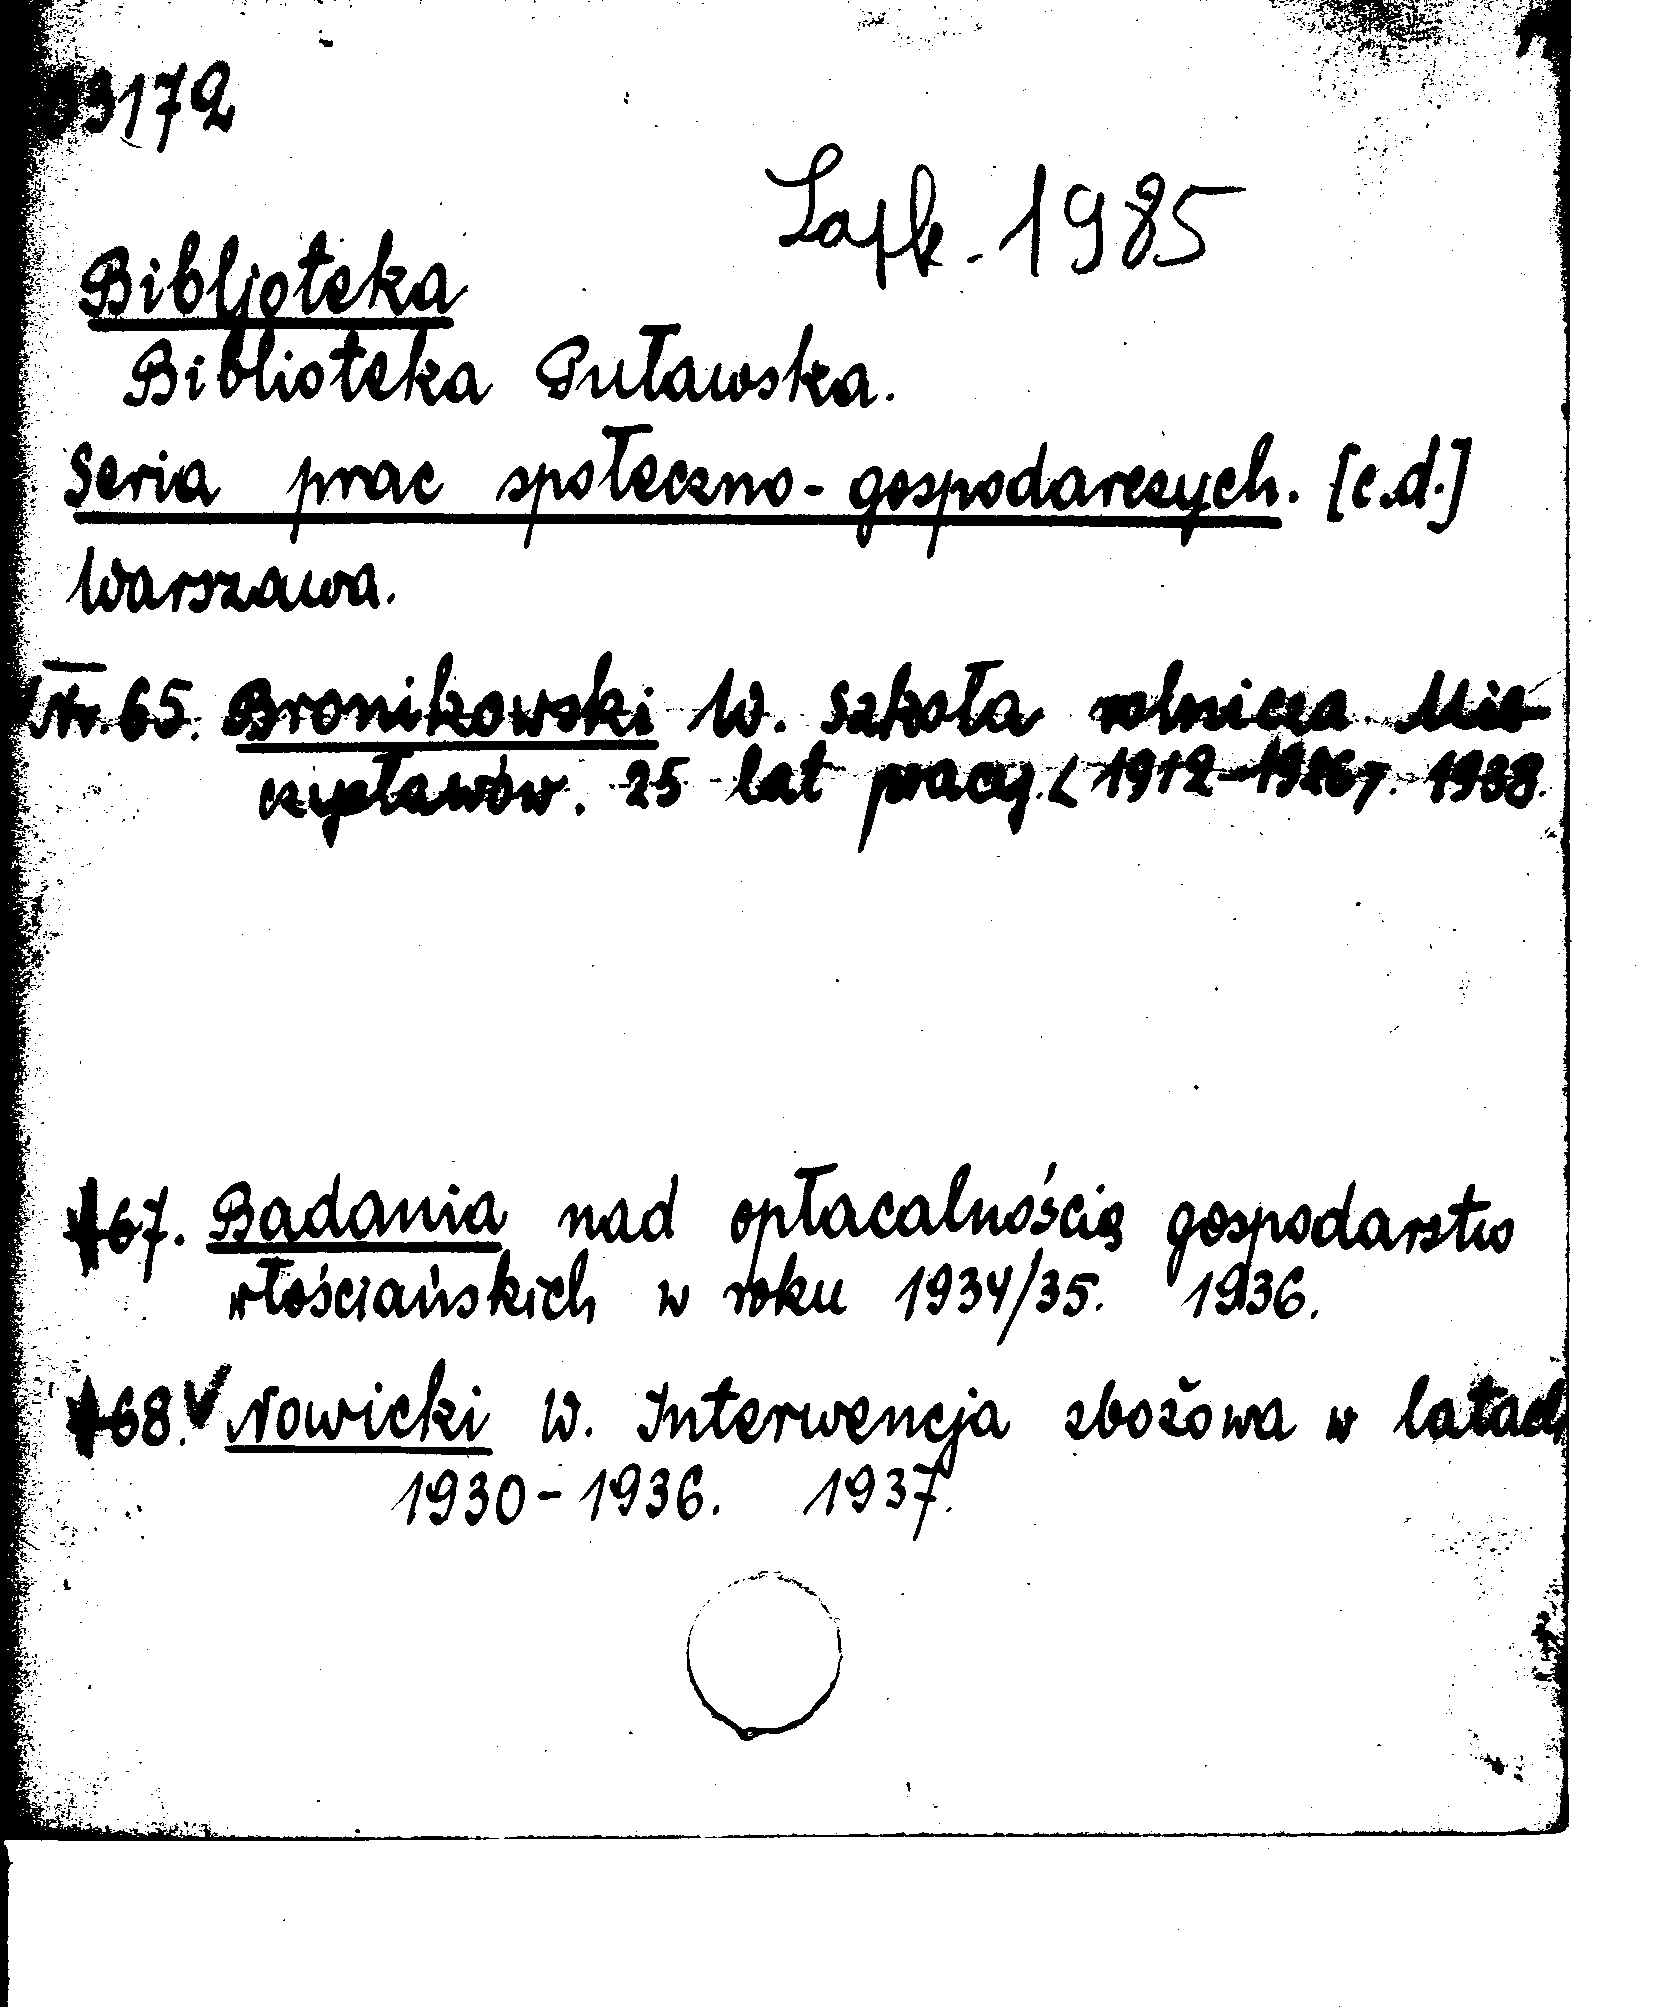 03172
Bibljoteka
Biblioteka Puławska.
Seria prac społeczno-gospodarczych. [c.d.]
Warszawa.
Nr. 65. Bronikowski W. Szkoła rolnicza Mie-
czysławów. 25 lat pracy. <1912-1936>. 1938.
67. Badania nad opłacalnością gospodarstw
włościańskich w roku 1934/35. 1936.
68. V Nowicki W. Interwencja zbożowa w latach
1930-1936. 1937.